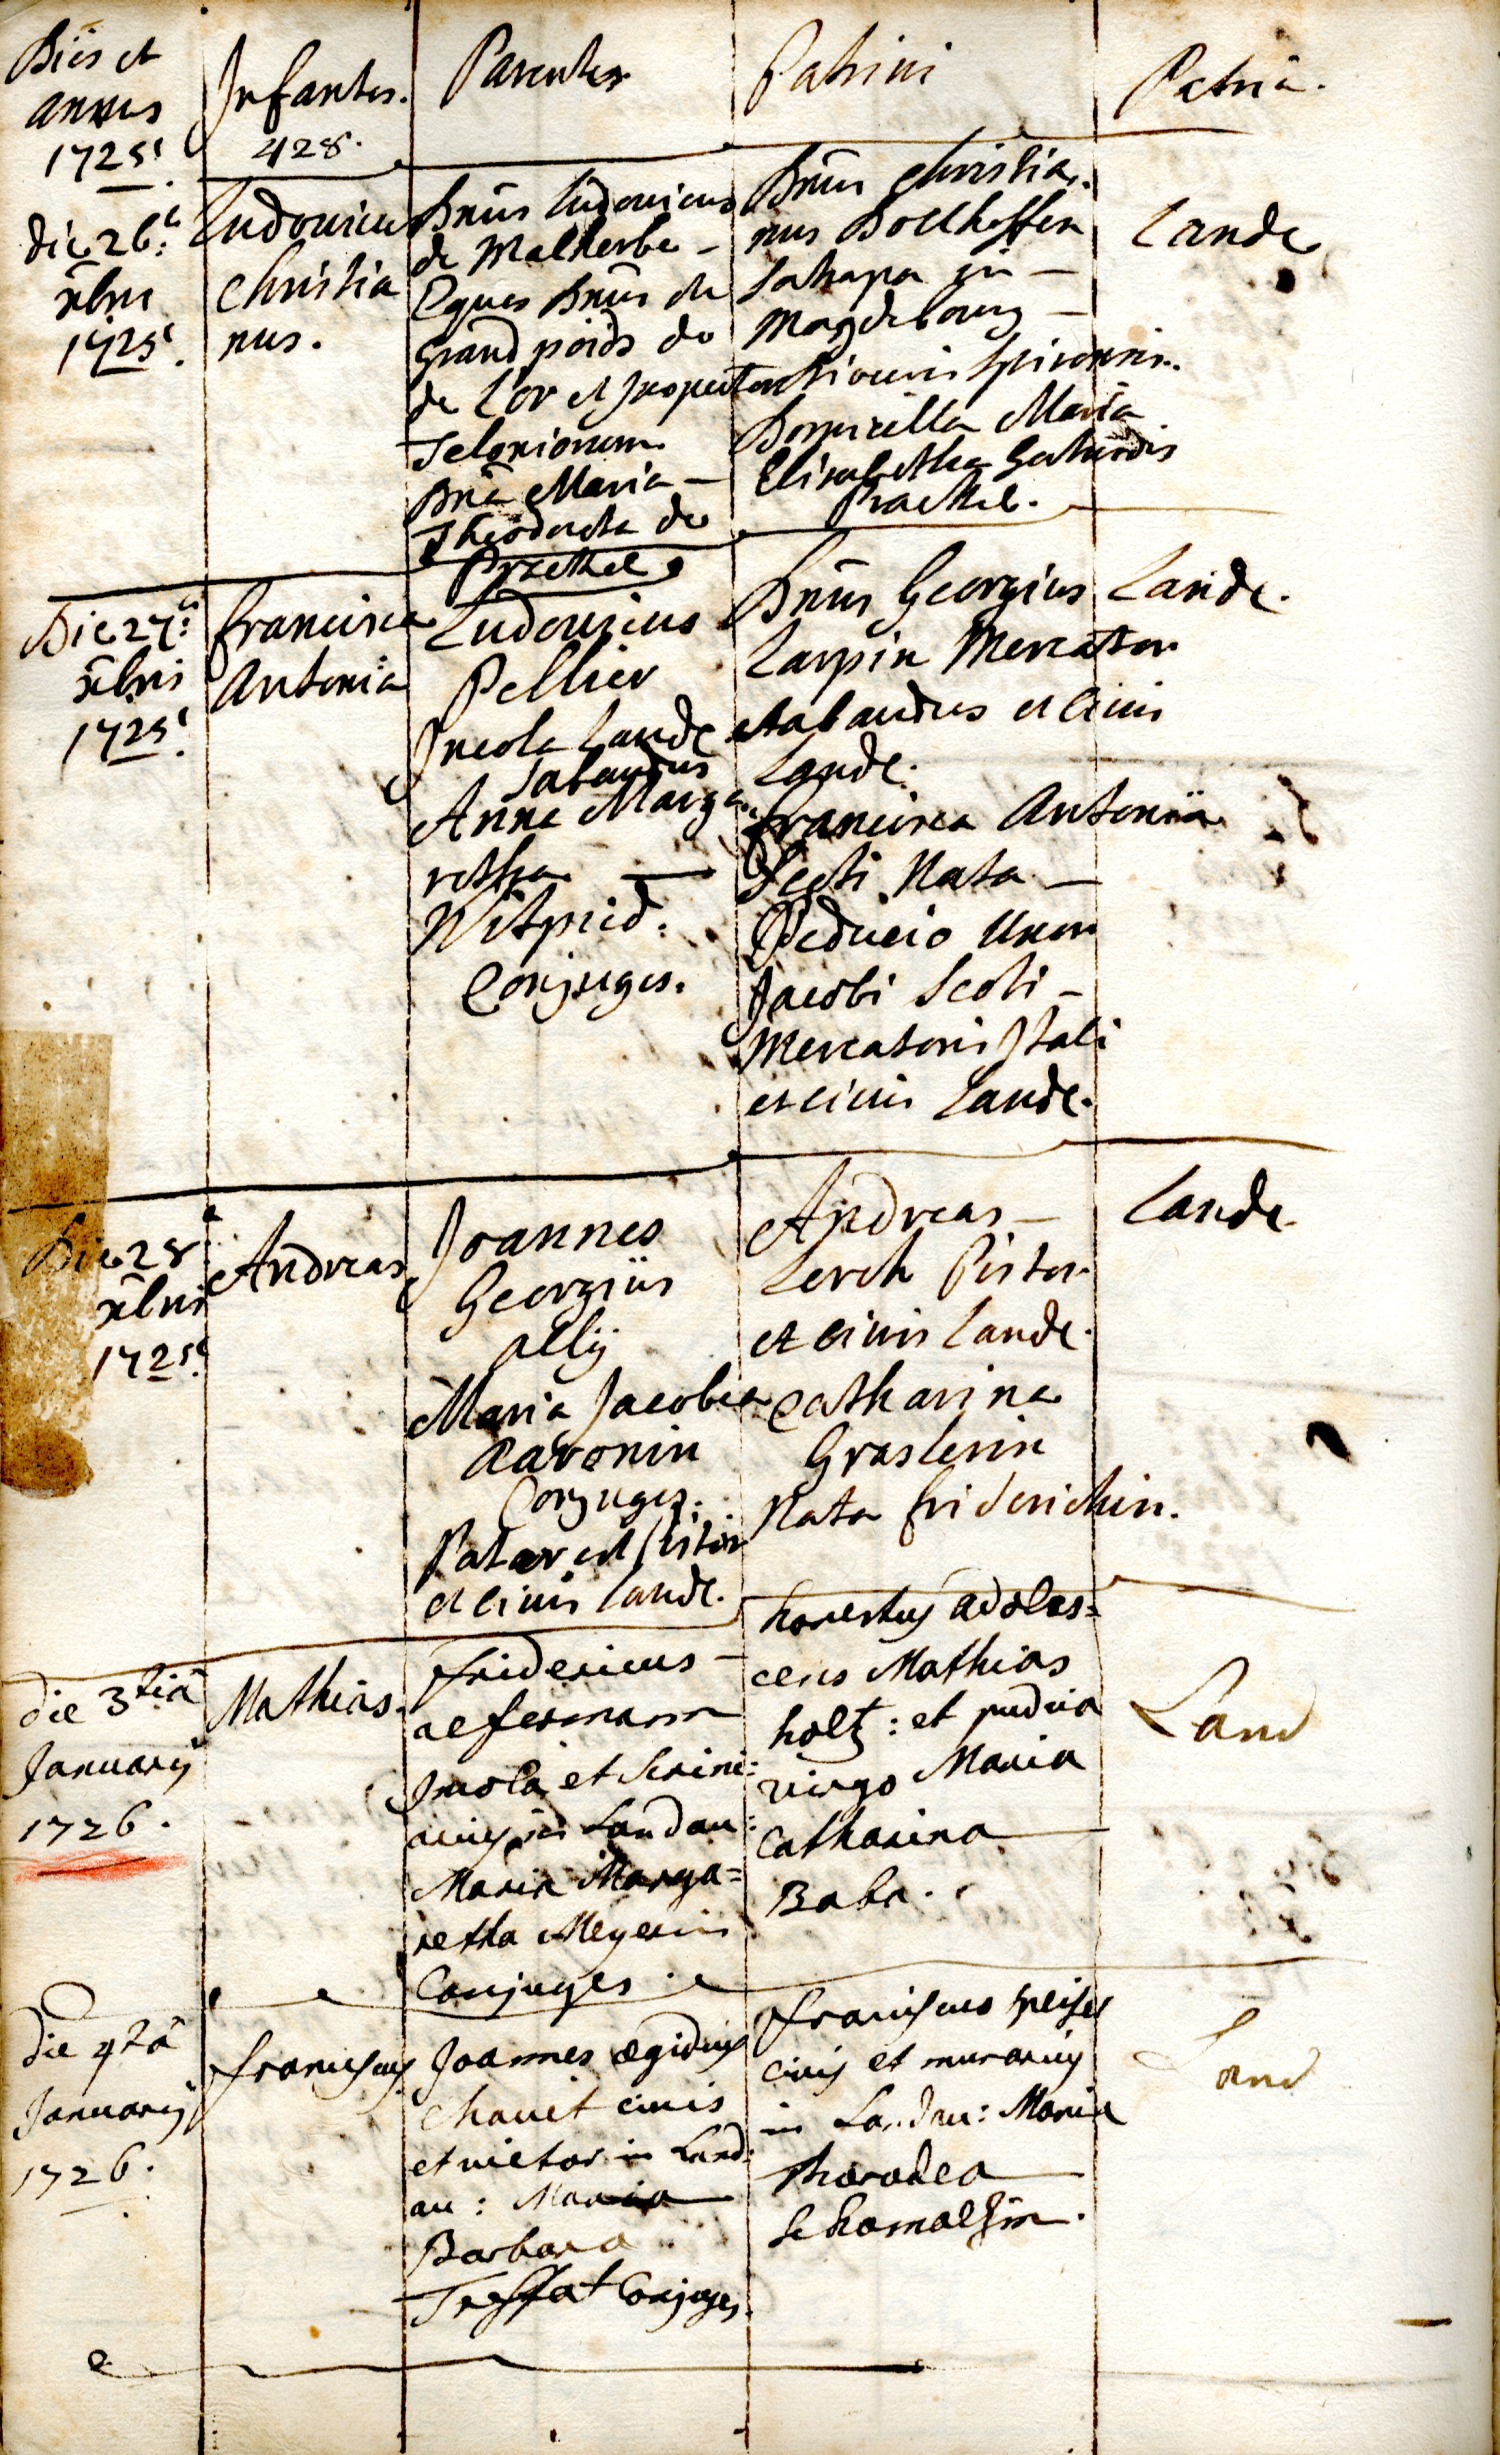 Dies et
annus
1725.
Infantes.
428.
Parentes
Patrini
Patria.
die 26.
xbris
1725.
Ludovicus
Christia
nus.
Dnus Ludovicus
de Malherbe -
Eques Dnus de
grand poids de
de l'or et Inspector
Teloniorum.
Dna Maria -
Theodora de
Praethel
Dnus Christia-
nus Bollhoffer
Satrapa in -
Magdebourg -
Spirensis.
Domicella Maria
Elisabetha Gertrudis
Praethel.
Lande
Die 27.
xbris
1725.
Francisca
Antonia
Ludovicus
Pellier
Incola Lande
Sabaudus
Anna Marga
retha -
Conjuges.
Dnus Georgius
Larpin Mercator
Sabaudus et civis
Lande.
Francisca Antonia
Scoti Nata -
Peducio Uxor
Jacobi Scoti -
Mercatoris Itali
et civis Lande.
Lande.
Die 28
xbris
1725.
Andreas
Joannes
Georgius
Maria Jacobea
Conjuges.
Pater est Pistor
et civis Lande.
Andreas -
Lerch Pistor
et civis Lande.
Catharina
Graslerin
Nata Friderichin.
Lande
die 3tia
Januarij
1726.
Mathias.
Fridericus -
Incola et Scrini:
in Landau:
Maria Marga=
retha Meyerin
Conjuges.
honestus adoles=
cens Mathias
holtz: et pudica
virgo Maria
Catharina
Baba.
Land
die 4ta
Januarij
1726.
Franciscus
Joannes Ægidius
Chauet civis
et vietor in Land:
au: Maria
Barbara
Treffat Conjuges.
Franciscus Speiser
civis et murarius
in Landau: Maria
Land